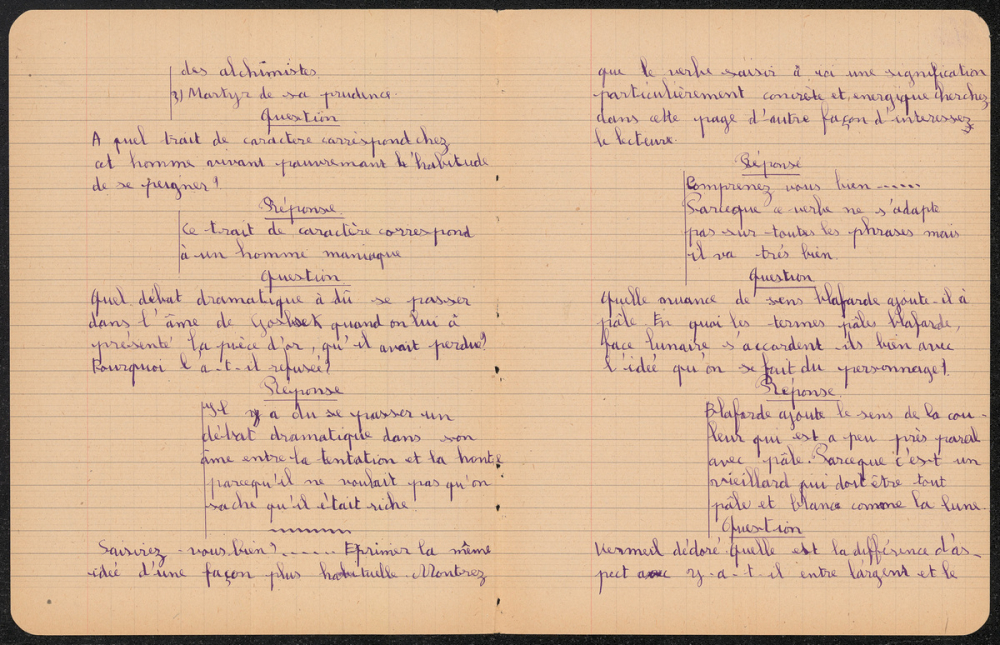 des alchimistes
3) Martyr de sa prudence.
Question
A quel trait de caractère correspond chez
cet homme vivant pauvrement l'habitude
de se peigner?
Réponse.
Ce trait de caractère correspond
à un homme maniaque
Question
Quel débat dramatique à dû se passer
dans l'âme de Gosbek quand on lui à
présenté la pièce d'or, qu'il avait perdue?
Pourquoi l'a-t-il refusée?
Réponse
Il y a du se passer un
débat dramatique dans son
âme entre la tentation et la honte
parcequ'il ne voulait pas qu'on
sache qu'il était riche.
Saisirez-vous bien? ...... Eprimer la même
idée d'une façon plus habituelle. Montrez
que le verbe saisir à ici une signification
particulièrement concrète et energique cherchez
dans cette page d'autre façon d'interessez
le lecteur.
Réponse
Comprenez vous bien ......
Parceque ce verbe ne s'adapte
pas sur toutes les phrases mais
il va très bien.
Question
Quelle nuance de sens blafarde ajoute-il à
pâle. En quoi les termes pâles blafarde,
face lunaire s'accordent ils bien avec
l'idée qu'on se fait du personnage?
Réponse.
Blafarde ajoute le sens de la cou-
leur qui est a peu près pareil
avec pâle. Parceque c'est un
vieillard qui doit être tout
pâle et blanc comme la lune.
Question
Vermeil dédoré. Quelle est la différence d'as-
pect avec y-a-t-il entre l'argent et le